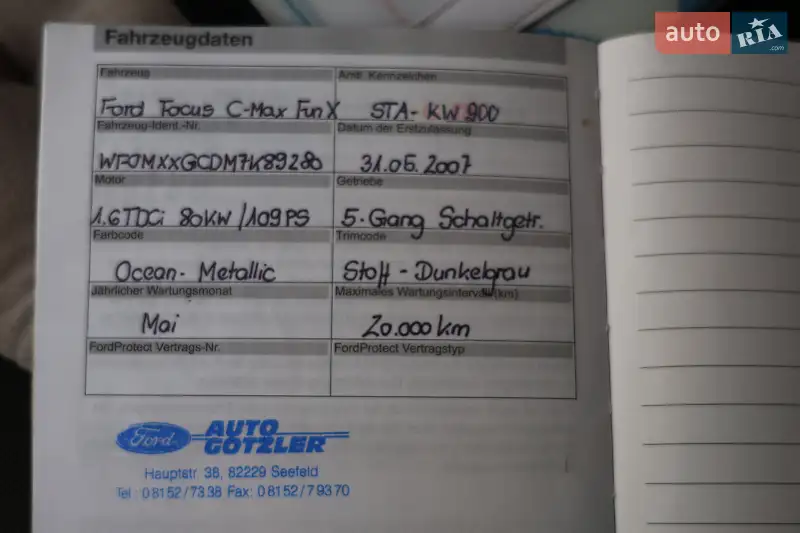 auto RIA .com
Fahrzeugdaten
Fahrzeug Amtl. Kennzeichen
Ford Focus C-Max Fun X STA-KW 900
Fahrzeug-Ident.-Nr. Datum der Erstzulassung
WF0MXXGCDM7K89280 31.05.2007
Motor Getriebe
1.6 TDCi 80KW/109PS 5-Gang Schaltgetr.
Farbcode Trimcode
Ocean-Metallic Stoff-Dunkelgrau
Jährlicher Wartungsmonat Maximales Wartungsintervall (km)
Mai 20.000 km
FordProtect Vertrags-Nr. FordProtect Vertragstyp
Ford AUTO GÖTZLER
Hauptstr. 38, 82229 Seefeld
Tel : 0 81 52 / 73 38 Fax: 0 81 52 / 7 93 70